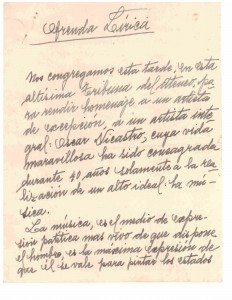 Ofrenda Lírica
Nos congregamos esta tarde, en esta
altísima tribuna del Ateneo, pa
ra rendir homenaje a un artista
de excepción, a un artista inte
gral: Oscar Nicastro, cuya vida
maravillosa ha sido consagrada
durante 40 años solamente a la rea
lización de un alto ideal: la mú-
sica.
La música, es el medio de expre-
sión patética mas vivo de que dispone
el hombre, es la maxima expresión de
que él se vale para pintar los estados